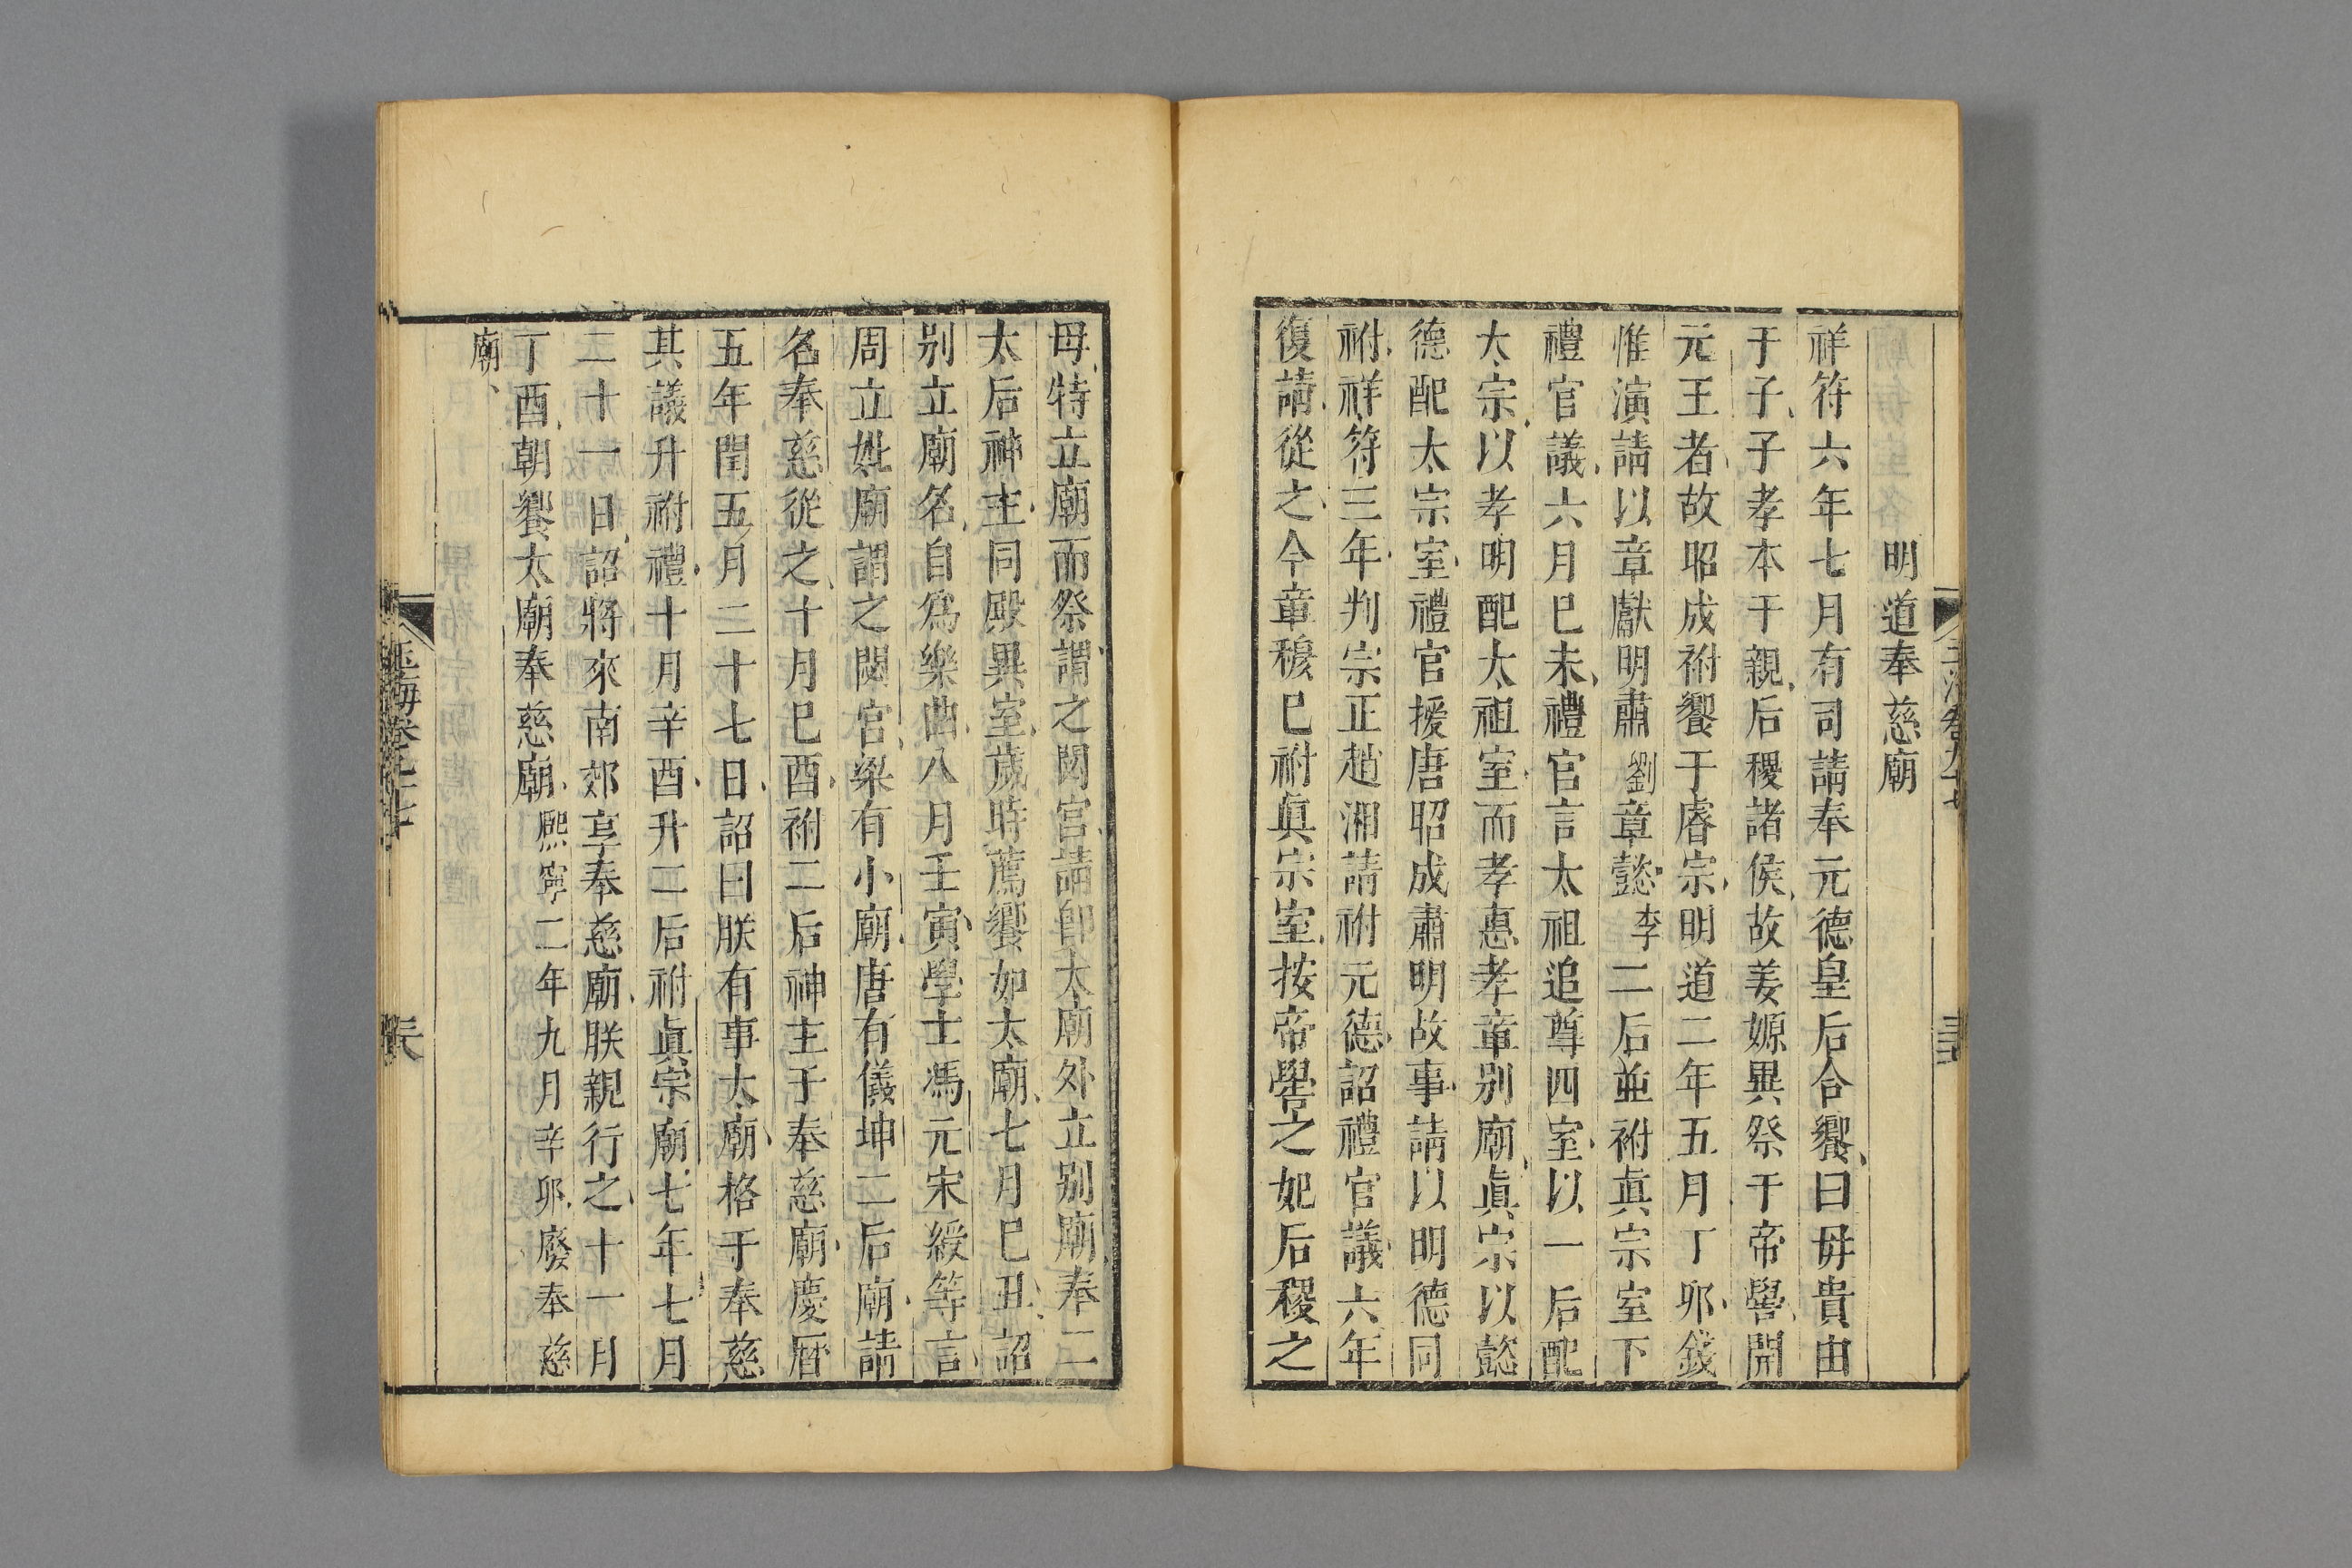 明道奉慈廟
祥符六年七月有司請奉元德皇后合饗曰毋貴由
于子子孝本于親后稷諸侯故姜嫄異祭于帝嚳開
元王者故昭成祔饗于睿宗明道二年五月丁卯錢
惟演請以章獻明肅劉章懿李二后並祔眞宗室下
禮官議六月已未禮官言太祖追尊四室以一后配
太宗以孝明配太祖室而孝惠孝章别廟眞宗以懿
德配太宗室禮官援唐昭成肅明故事請以明德同
祔祥符三年判宗正趙湘請祔元德詔禮官議六年
復請從之今章穆巳祔眞宗室按帝嚳之妃后稷之
母特立廟而祭謂之閟宫請卽太廟外立别廟奉二
太后神主同殿異室歲時薦饗如太廟七月巳丑詔
别立廟名自爲樂曲八月壬寅學士馮元宋綬等言
周立妣廟謂之閟宫梁有小廟唐有儀坤二后廟請
名奉慈從之十月巳酉祔二后神主于奉慈廟慶曆
五年閏五月二十七日詔曰朕有事太廟格于奉慈
其議升祔禮十月辛酉升二后祔眞宗廟七年七月
二十一日詔將來南郊享奉慈廟朕親行之十一月
丁酉朝饗太廟奉慈廟熈寧二年九月辛卯廢奉慈
廟
玉海卷九十七